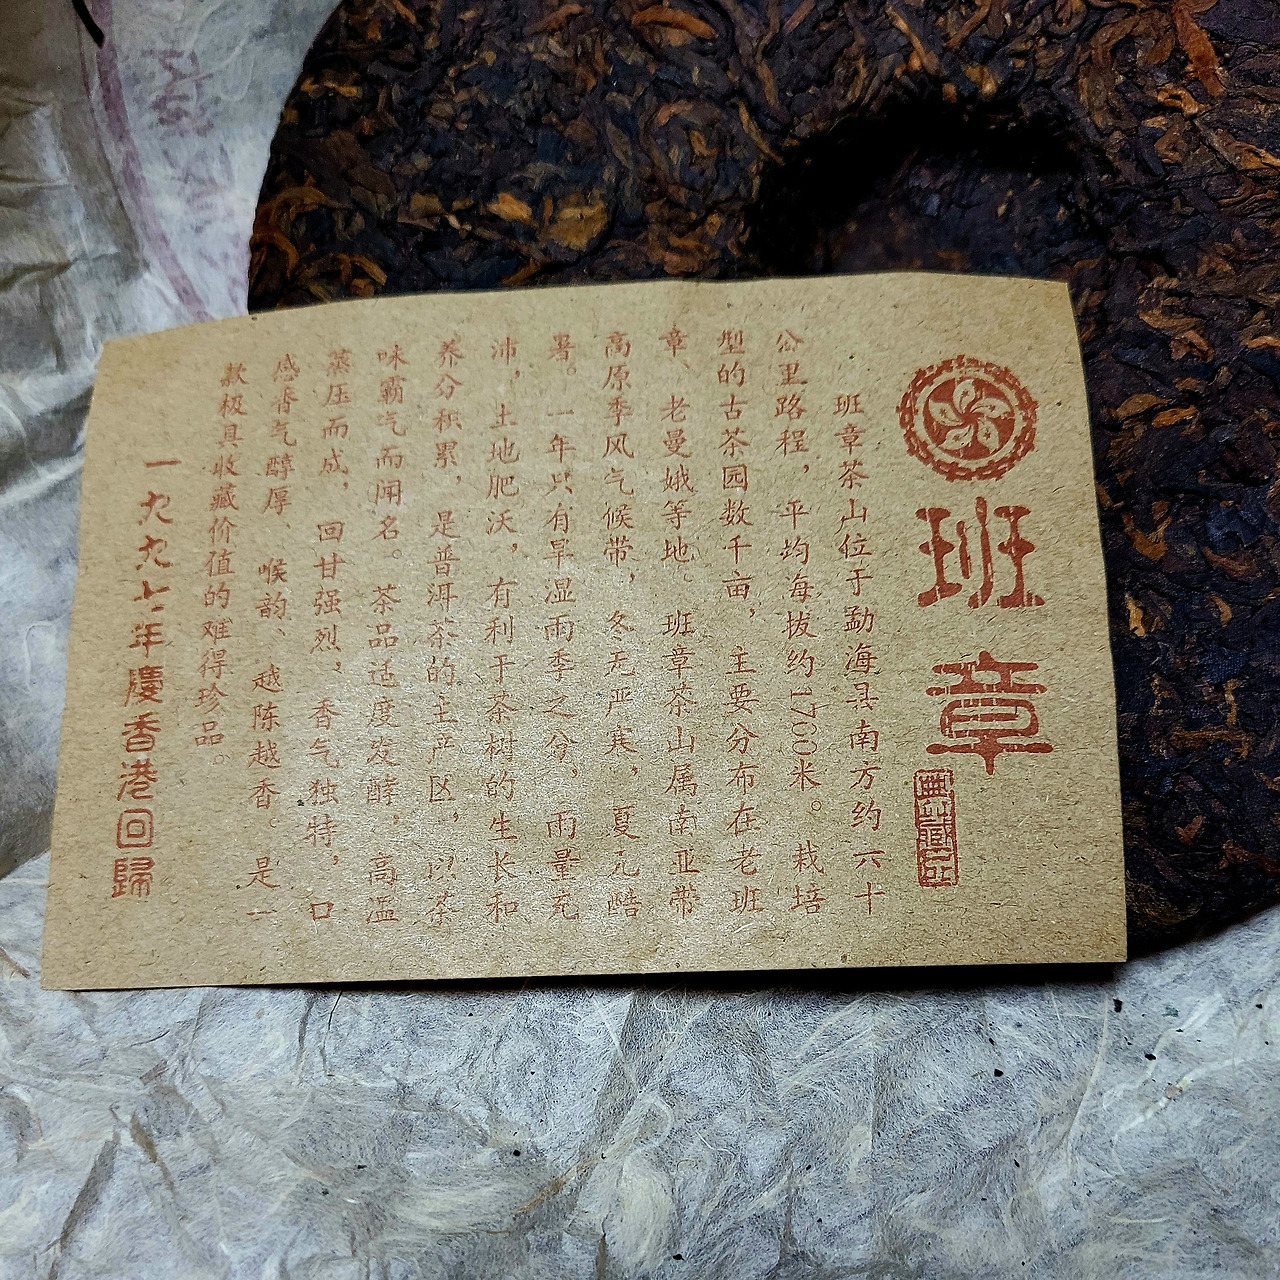 班章
典藏品
班章茶山位于勐海县南方约六十
公里路程，平均海拔约1760米。栽培
型的古茶园数千亩，主要分布在老班
章、老曼娥等地。班章茶山属南亚带
高原季风气候带，冬无严寒，夏无酷
暑。一年只有旱湿雨季之分，雨量充
沛，土地肥沃，有利于茶树的生长和
养分积累，是普洱茶的主产区，以茶
味霸气而闻名。茶品适度发酵，高温
蒸压而成，回甘强烈，香气独特，口
感香气醇厚、喉韵、越陈越香。是一
款极具收藏价值的难得珍品。
一九九七年慶香港回歸